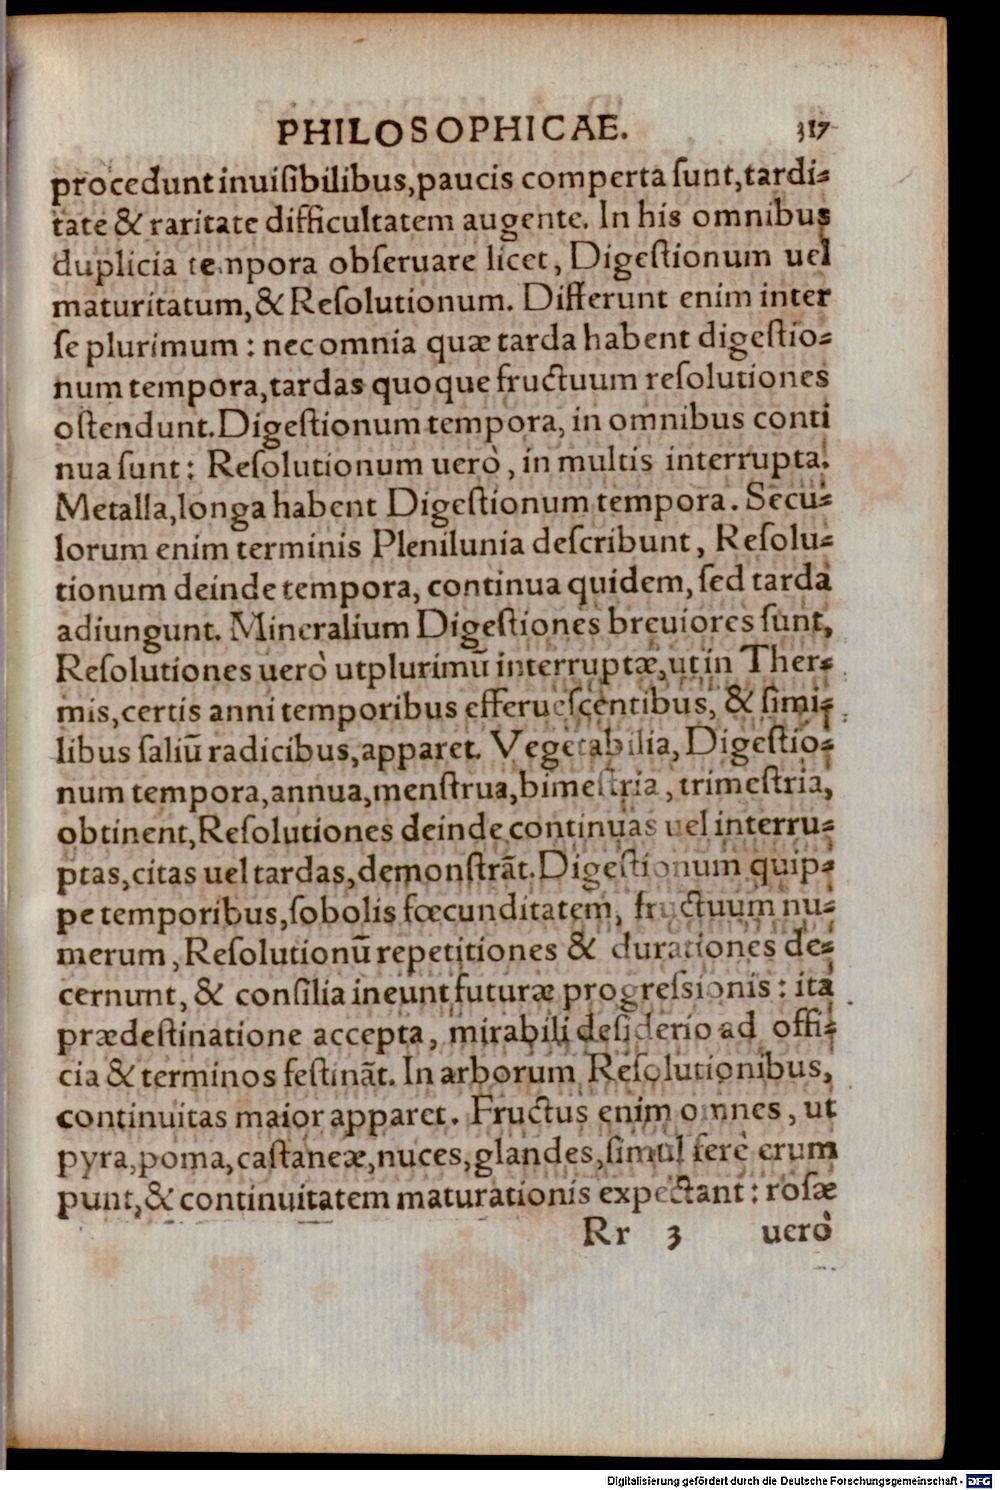 PHILOSOPHICAE. 317
procedunt inuiſibilibus,paucis comperta ſunt,tardi⸗
tate & raritate difficultatem augente. In his omnibus
duplicia tempora obſeruare licet, Digeſtionum uel
maturitatum,& Reſolutionum. Differunt enim inter
ſe plurimum : nec omnia quæ tarda habent digeſtio⸗
num tempora,tardas quoque fructuum reſolutiones
oſtendunt.Digeſtionum tempora, in omnibus conti
nua ſunt: Reſolutionum uerò, in multis interrupta.
Metalla,longa habent Digeſtionum tempora. Secu⸗
lorum enim terminis Plenilunia deſcribunt, Reſolu⸗
tionum deinde tempora, continua quidem, ſed tarda
adiungunt. Mineralium Digeſtiones breuiores ſunt,
Reſolutiones uerò utplurimū interruptæ,ut in Ther⸗
mis,certis anni temporibus efferueſcentibus, & ſimi⸗
libus ſaliū radicibus,apparet. Vegetabilia, Digeſtio⸗
num tempora,annua,menſtrua,bimeſtria, trimeſtria,
obtinent,Reſolutiones deinde continuas uel interru⸗
ptas,citas uel tardas,demonſtrāt.Digeſtionum quip⸗
pe temporibus,ſobolis fœcunditatem, fructuum nu⸗
merum, Reſolutionū repetitiones & durationes de⸗
cernunt, & conſilia ineunt futuræ progreſsionis : ita
prædeſtinatione accepta, mirabili deſiderio ad offi⸗
cia & terminos feſtināt. In arborum Reſolutionibus,
continuitas maior apparet. Fructus enim omnes, ut
pyra,poma,caſtaneæ,nuces,glandes,ſimul ferè erum
punt,& continuitatem maturationis expectant : roſæ
Rr 3 uerò
Digitalisierung gefördert durch die Deutsche Forschungsgemeinschaft - DFG